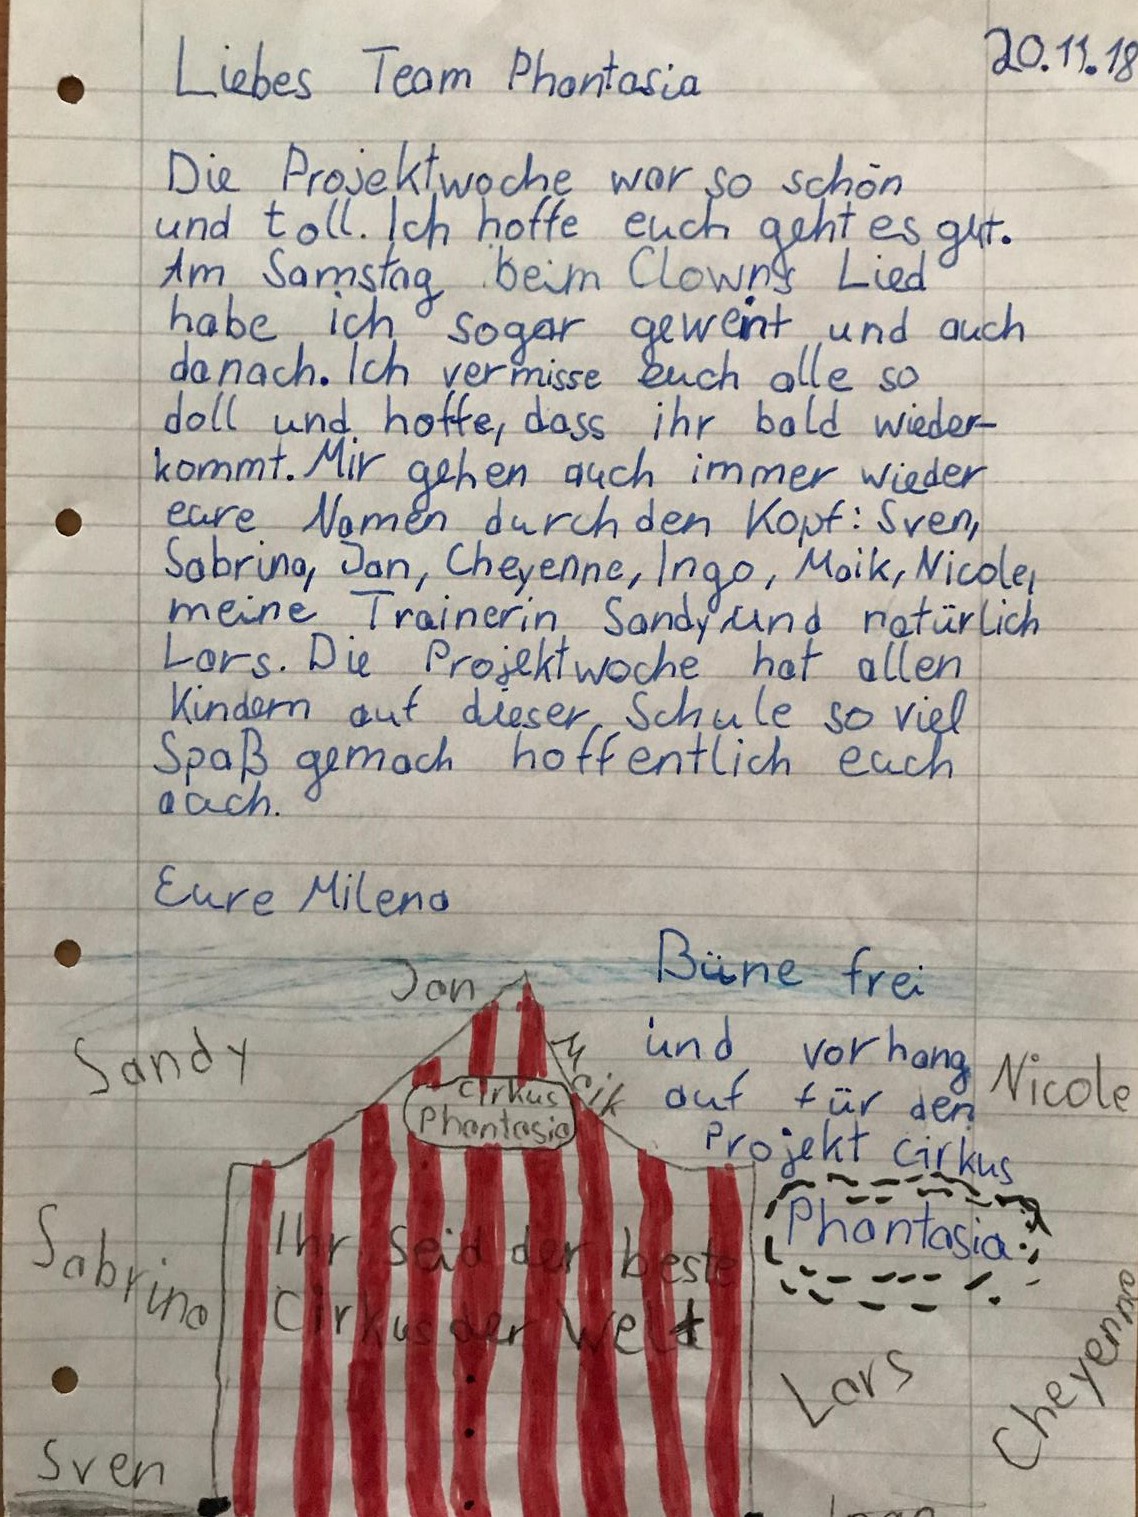 20.11.18
Liebes Team Phantasia
Die Projektwoche war so schön
und toll. Ich hoffe euch geht es gut.
Am Samstag beim Clowns Lied
habe ich sogar geweint und auch
danach. Ich vermisse euch alle so
doll und hoffe, dass ihr bald wieder-
kommt. Mir gehen auch immer wieder
eure Namen durch den Kopf: Sven,
Sabrina, Jan, Cheyenne, Ingo, Maik, Nicole,
meine Trainerin Sandy und natürlich
Lars. Die Projektwoche hat allen
Kindern auf dieser Schule so viel
Spaß gemach hoffentlich euch
auch.
Eure Milena
Büne frei
und vorhang
auf für den
Projekt Cirkus
Phantasia.
Jan
Sandy
Maik
Nicole
Cirkus
Phantasia
Ihr seid der beste
Cirkus der Welt
Sabrina
Lars
Cheyenne
Sven
Ingo